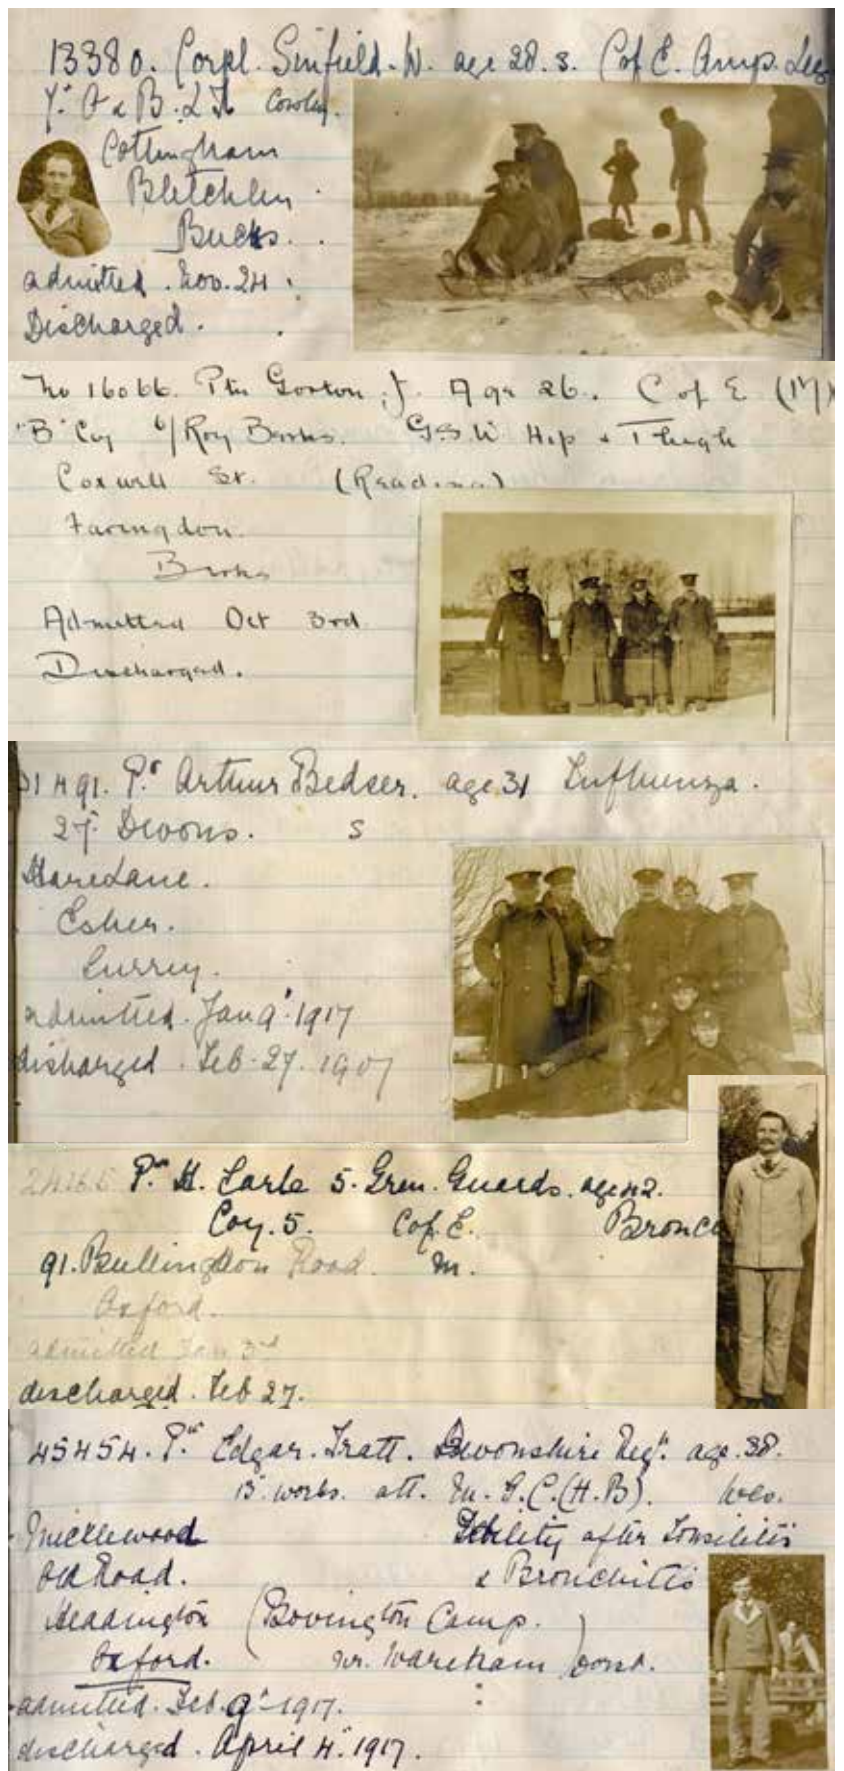 13380. Corpl. Sinfield. W. age 28. s. C of E. Amp. Leg
7th O & B. L I. Cowley.
Cottingham
Bletchley
Bucks.
admitted. Nov. 24
Discharged.
No 16066. Pte Gorton, J. Age 26. C of E (M)
"B" Coy 6/Roy Berks. G.S.W Hip & Thigh
Coxwell St. (Reading)
Faringdon.
Berks
Admitted Oct 3rd
Discharged.
31491. Pte Arthur Bedser. age 31 Influenza.
Devons. S
Hare Lane.
Esher.
Surrey.
admitted. Jan 9th 1917
discharged. Feb. 27. 1907
Pte H. Earle 5. Gren. Guards. age 42.
Coy. 5. C of E. Bronc
91. Bullingdon Road. m.
Oxford.
admitted Jan 3rd
discharged. Feb 27.
45454. Pte Edgar. Tratt. Devonshire Regt. age. 38.
13th works. att. M. G. C. (H.B). Wes.
Micklewood Debility after Tonsilitis
Old Road. & Bronchitis
Headington (Bovington Camp.
Oxford. nr. Wareham)
admitted. Feb. 9th 1917.
discharged. April 4th 1917.